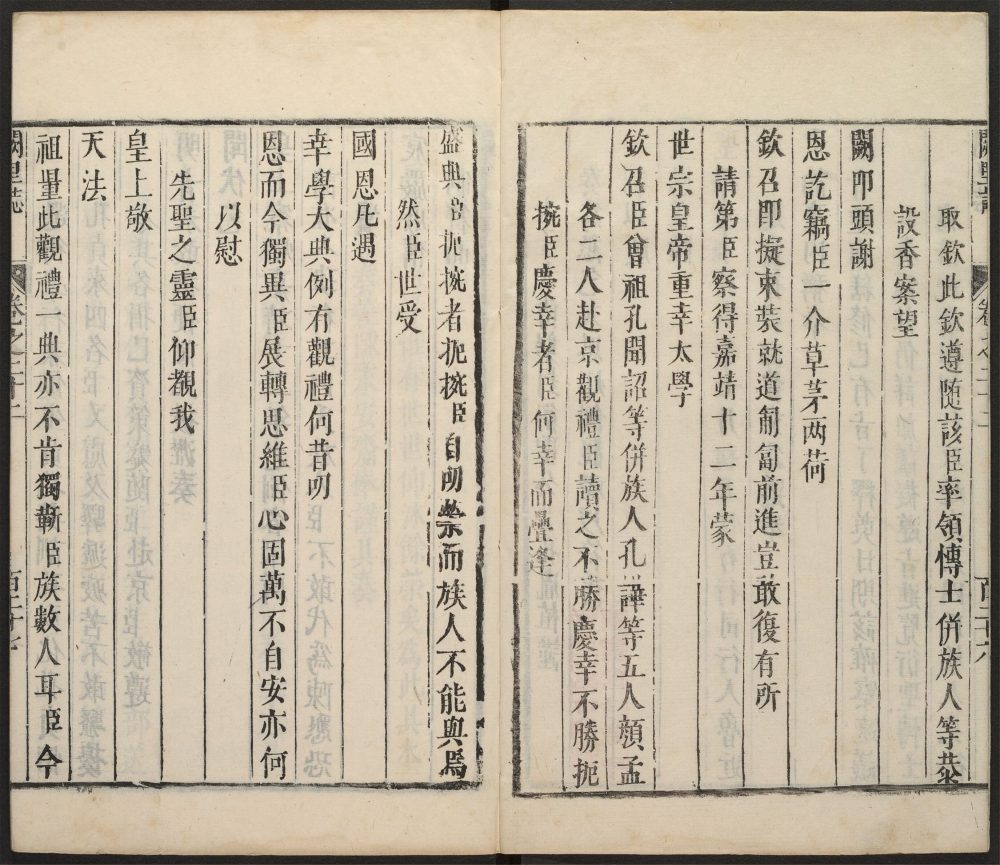 取欽此欽遵隨該臣率領博士併族人等恭
設香案望
闕叩頭謝
恩訖竊臣一介草茅兩荷
欽召即擬束裝就道匍匐前進豈敢復有所
請第臣察得嘉靖十二年蒙
世宗皇帝重幸太學
欽召臣曾祖孔聞韶等併族人孔 等五人顏孟
各二人赴京觀禮臣讀之不勝慶幸不勝扼
擥臣慶幸者臣何幸而疊逢
盛典 扼擥者扼擥臣自明 而族人不能與焉
然臣世受
國恩凡遇
幸學大典例有觀禮何昔明
恩而今獨異臣展轉思維臣心固萬不自安亦何
以慰
先聖之靈臣仰覩我
皇上敬
天法
祖量此觀禮一典亦不肯獨靳臣族數人耳臣今
闕里誌
卷之二十一